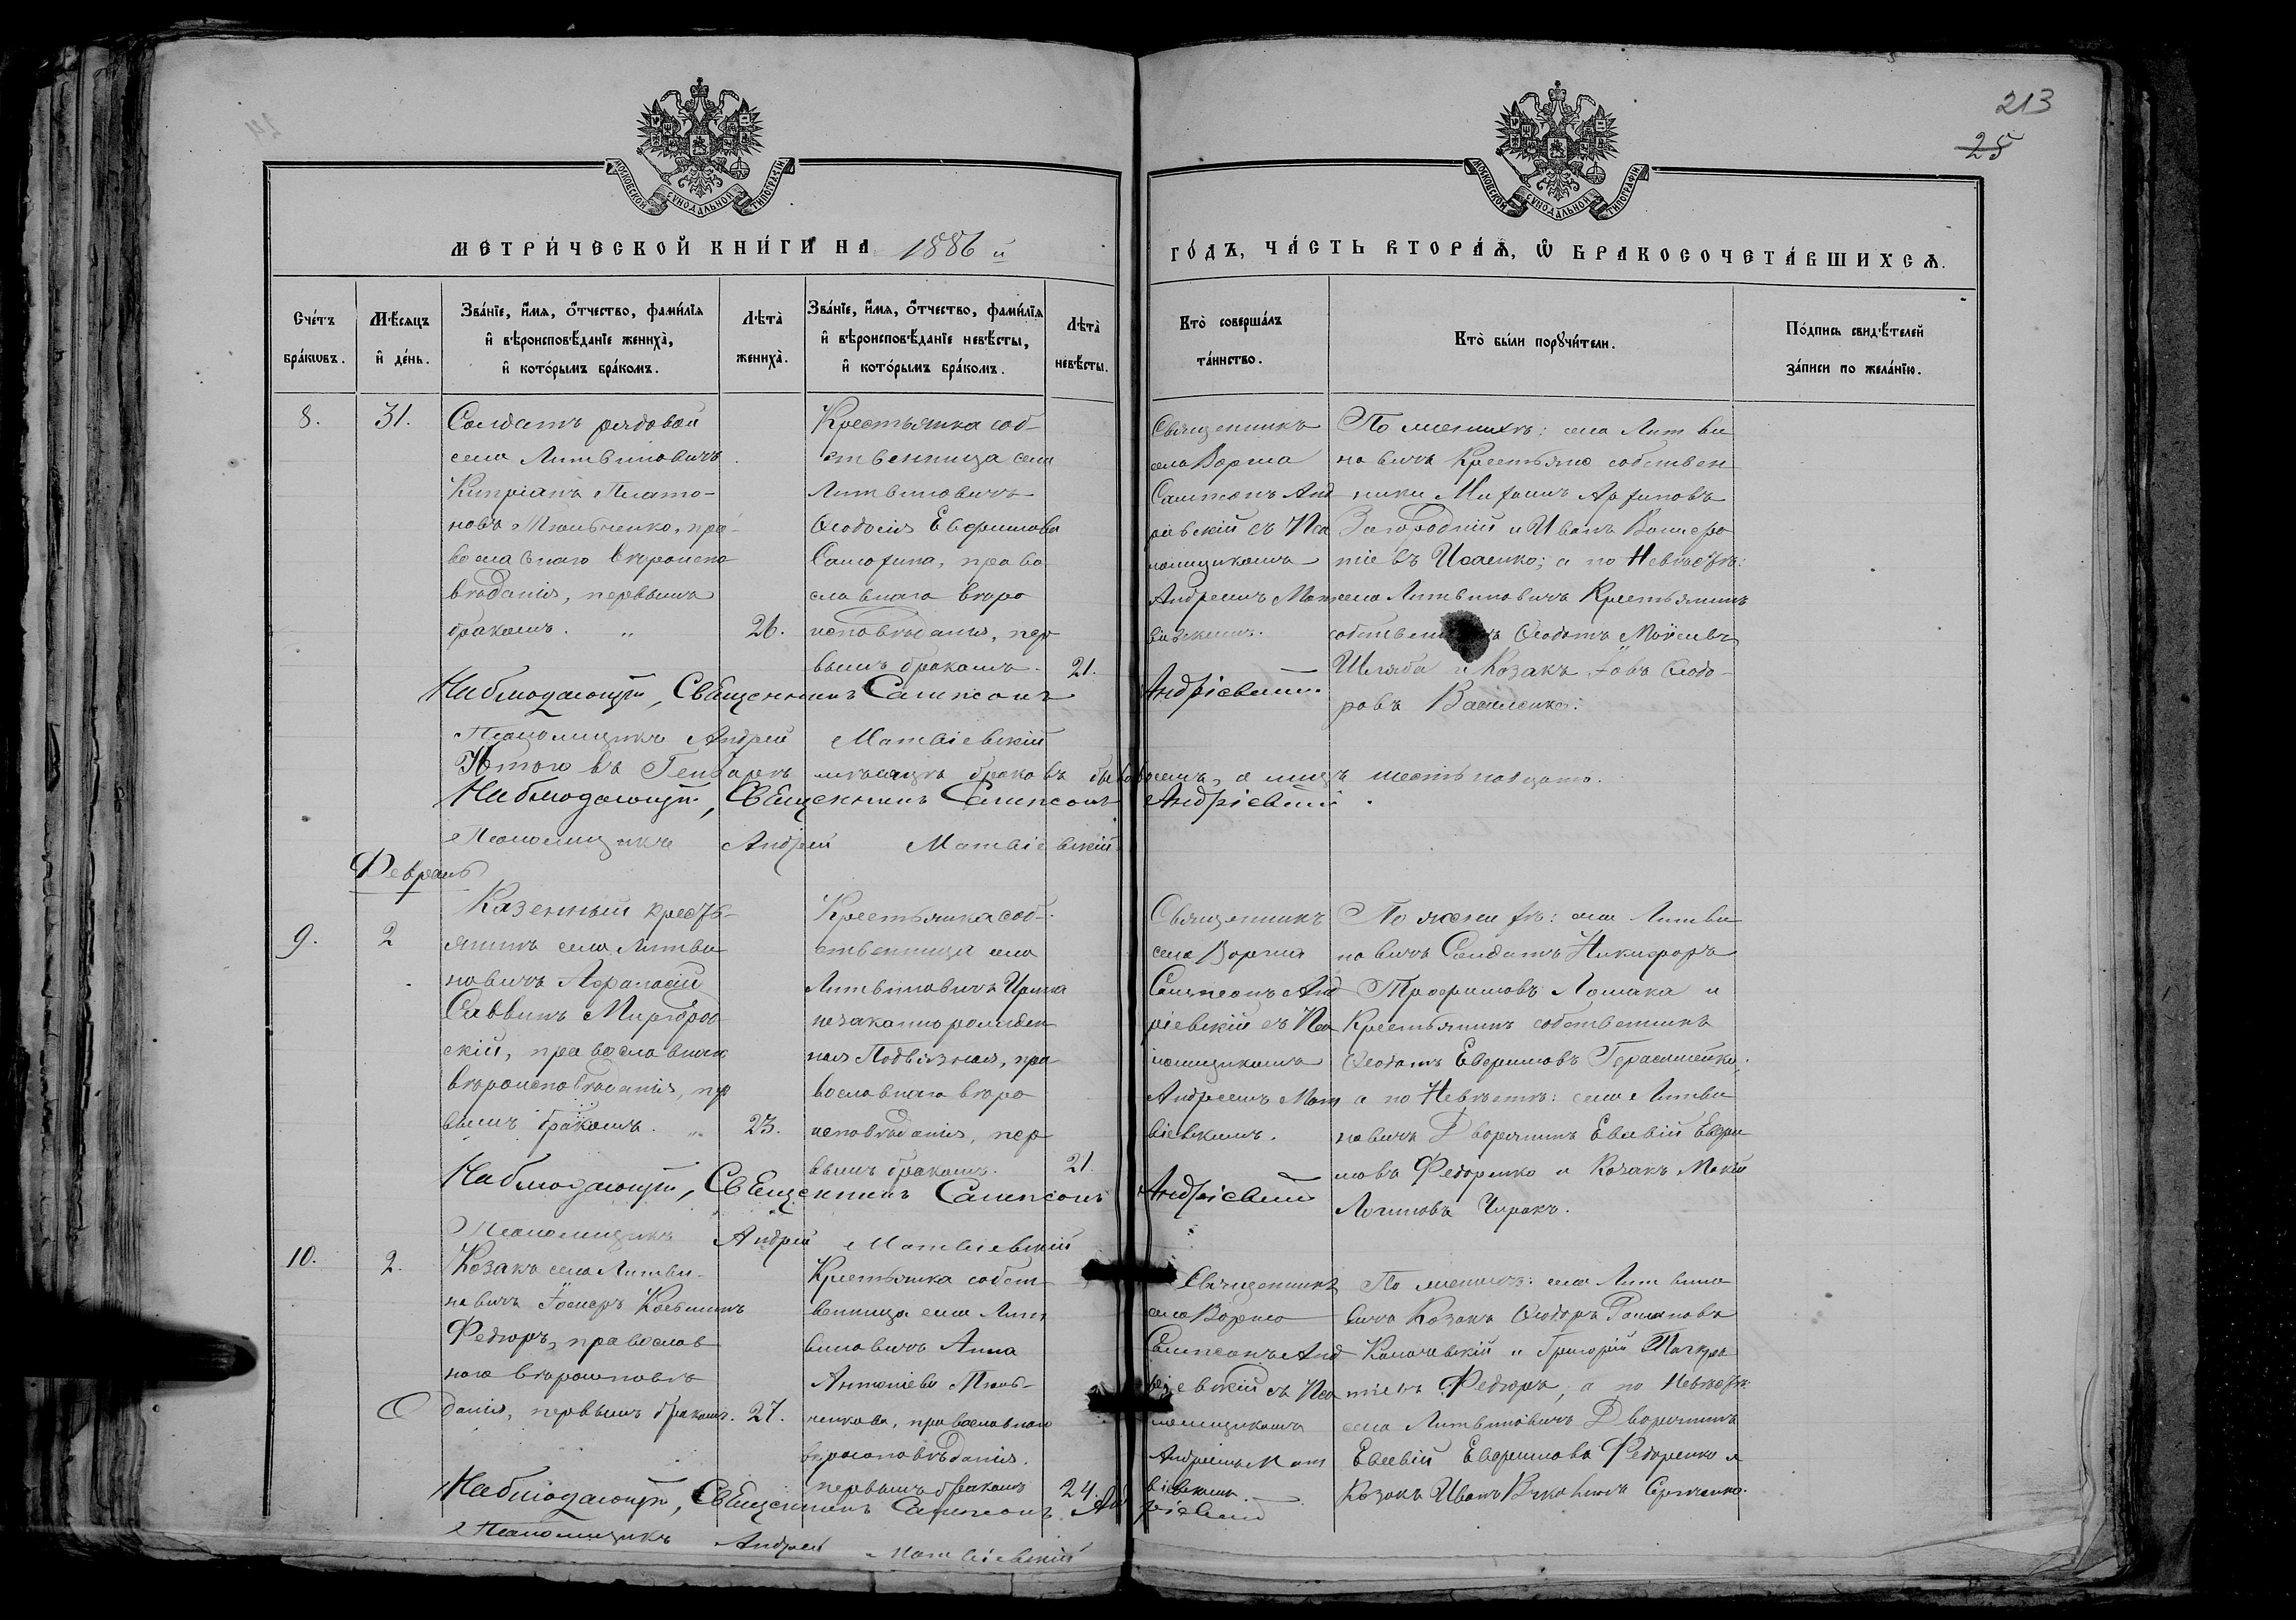 213
25
МОСКОВСКОЙ СѴНОДАЛЬНОЙ ТИПОГРАФІИ
МОСКОВСКОЙ СѴНОДАЛЬНОЙ ТИПОГРАФІИ
МЕТРИ́ЧЕСКОЙ КНИ́ГИ НА 1886 й
ГО́ДЪ, ЧА́СТЬ ВТОРА́Ѧ, Ѿ БРАКОСОЧЕТА́ВШИХСѦ.
Сче́тъ бра́кωвъ.
Мѣ́сяцъ и҆ де́нь.
Зва́нїе, и҆́мя, ѻ҆́тчество, фами́лїя
и҆ вѣроисповѣ́данїе жениха̀,
и҆ кото́рымъ бра́комъ.
Лѣта̀ жениха̀.
Зва́нїе, и҆́мя, ѻ҆́тчество, фами́лїя
и҆ вѣроисповѣ́данїе невѣ́сты,
и҆ кото́рымъ бра́комъ.
Лѣта̀ невѣ́сты.
Кто̀ соверша́лъ та́инство.
Кто̀ бы́ли порꙋчи́тели.
По́дпись свидѣ́телей
за́писи по жела́нїю.
8.
31.
Солдатъ рядовой
села Литвиновичъ
Кипріанъ Плато-
новъ Тюльченко, пра-
вославнаго вѣроиспо
вѣданія, первымъ
бракомъ. „
26.
Крестьянка соб-
ственница села
Литвиновичъ
Ѳеодосія Евфимова
право
славнаго вѣро
исповѣданія, пер
вымъ бракомъ.
21.
Священникъ
села Воргла
Сампсонъ Анд
ріевскій съ Пса
ломщикомъ
Андреемъ Мат
віевскимъ.
По женихѣ: села Литви
новичъ Крестьяне собствен
ники
Загородній и Иванъ
Исаенко; а по Невѣстѣ:
села Литвиновичъ Крестьянинъ
Ѳеодотъ Моѵсеевъ
Шляба и Козакъ Іовъ Ѳеодо-
ровъ Василенко.
Наблюдающій, Священникъ Сампсонъ Андріевскій
Псаломщикъ Андрей Матвіевскій
Итого въ Генварѣ мѣсяцѣ браковъ было восемь, а лицъ шестьнадцать.
Наблюдающій, Священникъ Сампсонъ Андріевскій.
Псаломщикъ Андрей Матвіевскій
Февраль
9.
2
Казенный кресть-
янинъ села Литви
новичъ Афанасій
Саввинъ Миргород
скій, православнаго
вѣроисповѣданія, пер
вымъ бракомъ. „
23.
Крестьянка соб-
ственница села
Литвиновичъ Ирина
незаконнорожден
ная Подвязная, пра
вославнаго вѣро
исповѣданія, пер
вымъ бракомъ.
21.
Священникъ
села Воргла
Сампсонъ Анд
ріевскій съ Пса
ломщикомъ
Андреемъ Мат
віевскимъ.
По женихѣ: села Литви
новичъ Солдатъ Никифоръ
Трофимовъ Ломака и
Крестьянинъ собственникъ
Ѳеодотъ Евфимовъ Герасименко,
а по Невѣстѣ: села Литви
новичъ Дворянинъ Евсевій Евфи
мовъ Федоренко и Козакъ Мокій
Логиновъ Чирокъ.
Наблюдающій, Священникъ Сампсонъ Андріевскій
Псаломщикъ Андрей Матвіевскій
10.
2.
Козакъ села Литви-
новичъ Іосифъ Косьминъ
Федюръ, православ
наго вѣроисповѣ
данія, первымъ бракомъ.
27.
Крестьянка собст
венница села Лит
виновичъ Анна
Антоніева Тюль-
ченкова, православнаго
вѣроисповѣданія,
первымъ бракомъ
24.
Священникъ
села Воргла
Сампсонъ Анд
ріевскій съ Пса
ломщикомъ
Андреемъ Мат
віевскимъ.
По женихѣ: села Литвино
вичъ Козакъ Ѳеодоръ Романовъ
и Григорій Панкра
тіевъ Федюръ, а по Невѣстѣ:
села Литвиновичъ Дворянинъ
Евсевій Евфимовъ Федоренко и
Козакъ Иванъ
Наблюдающій, Священникъ Сампсонъ Андріевскій
Псаломщикъ Андрей Матвіевскій